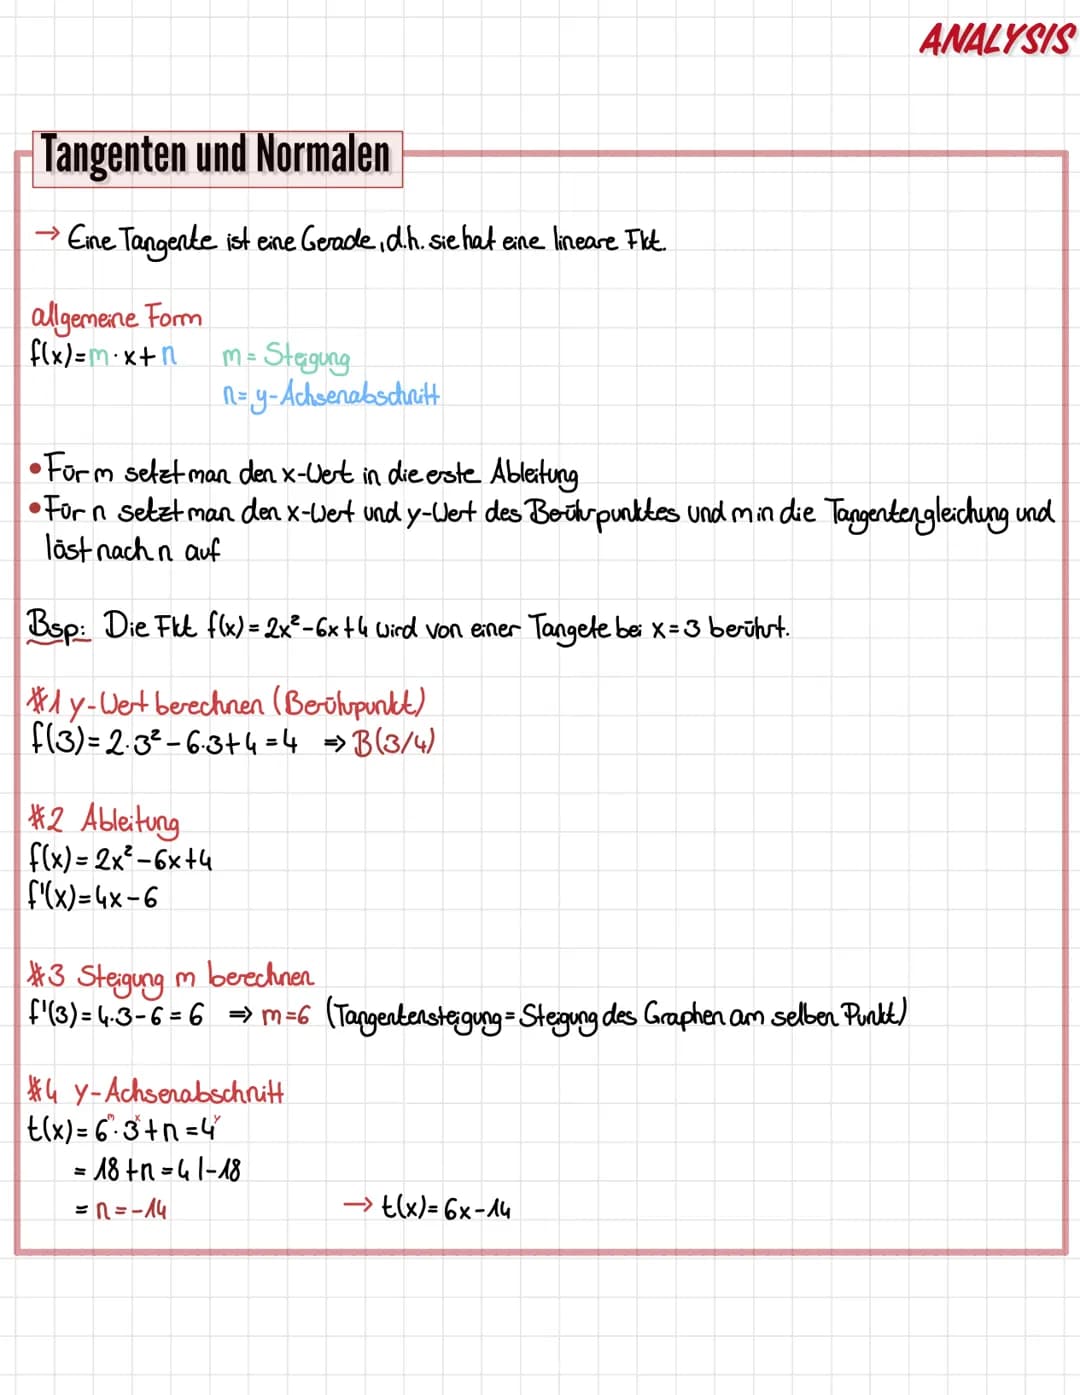 ANALYSIS
Tangenten und Normalen
→ Eine Tangente ist eine Gerade, d.h. sie hat eine lineare Fkt.
allgemeine Form
f(x)=m·x+n m = Steigung
n= y-Achsenabschnitt
• Für m setzt man den x-Wert in die erste Ableitung
• Für n setzt man den x-Wert und y-Wert des Berührpunktes und m in die Tangentengleichung und
löst nach n auf
Bsp: Die Fkt f(x) = 2x²-6x+4 wird von einer Tangete bei x=3 berührt.
#1 y-Wert berechnen (Berührpunkt)
f(3)= 2·3² - 6·3+4 = 4 ⇒ B(3/4)
#2 Ableitung
f(x) = 2x²-6x+4
f'(x)=4x-6
#3 Steigung m berechnen
f'(3)= 4·3-6 = 6 ⇒ m=6 (Tangentensteigung = Steigung des Graphen am selben Punkt)
#4 y-Achsenabschnitt
t(x) = 6ᵐ·3ˣ+n = 4ʸ
= 18 +n = 4 |-18
= n = -14 → t(x)= 6x-14